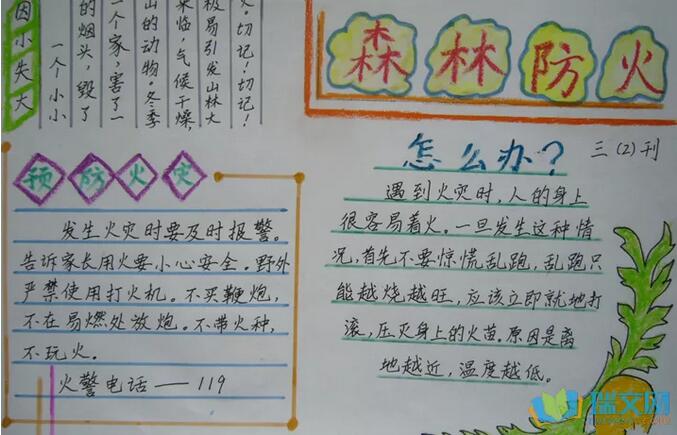 森林防火
三(2)刊
因小失大
一个小小
的烟头,毁了
一个家,害了一
山的动物。冬季
来临,气候干燥,
极易引发山林大
火,切记!切记!
预防火灾
发生火灾时要及时报警。
告诉家长用火要小心安全。野外
严禁使用打火机。不买鞭炮,
不在易燃处放炮。不带火种,
不玩火。
火警电话——119
怎么办?
遇到火灾时,人的身上
很容易着火。一旦发生这种情
况,首先不要惊慌乱跑,乱跑只
能越烧越旺,应该立即就地打
滚,压灭身上的火苗。原因是离
地越近,温度越低。
瑞文网